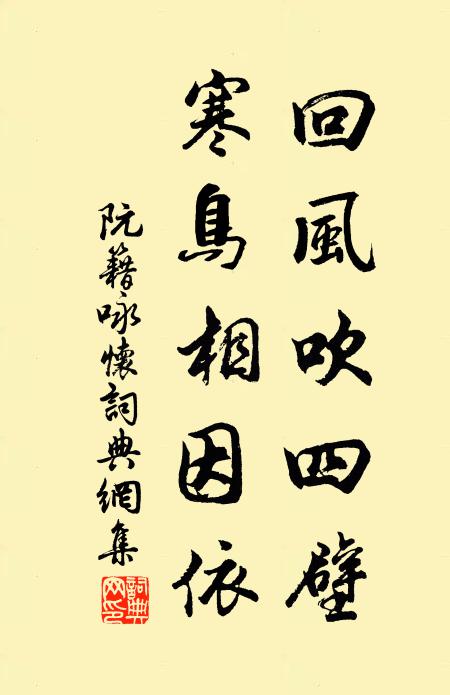 回風吹四壁
寒鳥相因依
阮籍咏懷詞典網集
詞典网印